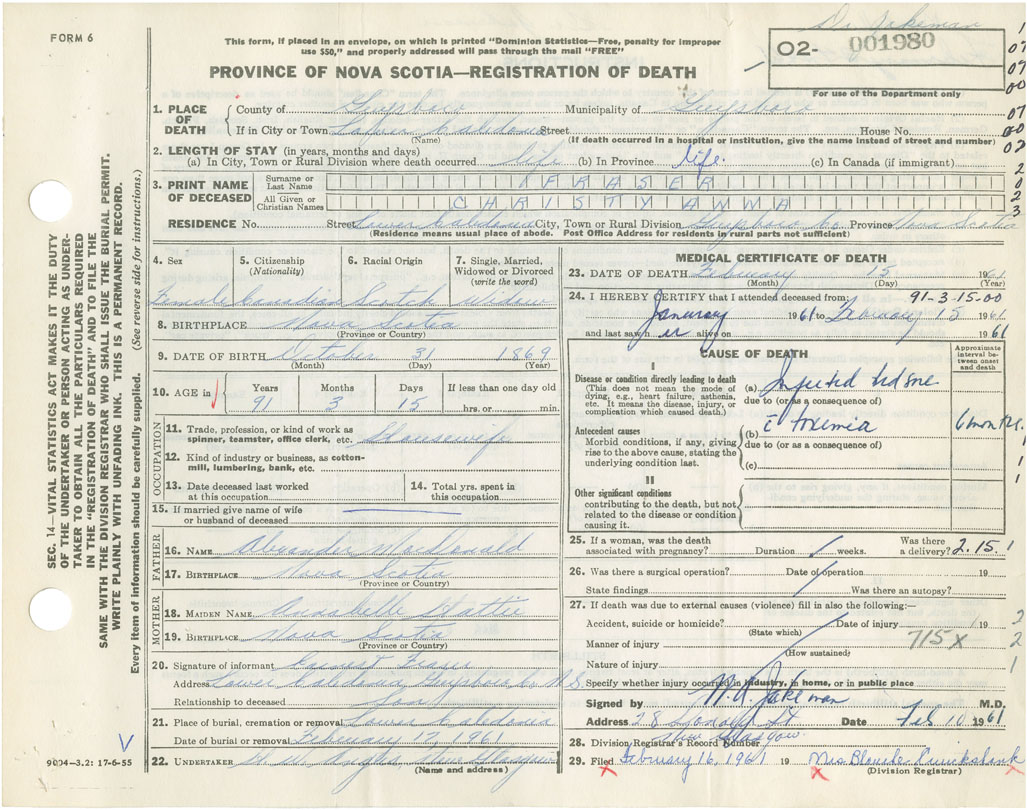 FORM 6
Dr. Jakeman
This form, if placed in an envelope, on which is printed "Dominion Statistics—Free, penalty for improper
use $50," and properly addressed will pass through the mail "FREE"
02- 001980
PROVINCE OF NOVA SCOTIA—REGISTRATION OF DEATH
For use of the Department only
1. PLACE OF DEATH County of Guysboro Municipality of Guysboro
If in City or Town Lower Caledonia Street House No.
(Name) (If death occurred in a hospital or institution, give the name instead of street and number)
2. LENGTH OF STAY (in years, months and days)
(a) In City, Town or Rural Division where death occurred life (b) In Province life. (c) In Canada (if immigrant)
3. PRINT NAME OF DECEASED Surname or Last Name FRASER
All Given or Christian Names CHRISTY ANNA
RESIDENCE No. Street Lower Caledonia City, Town or Rural Division Guysboro Co Province Nova Scotia
(Residence means usual place of abode. Post Office Address for residents by rural parts not sufficient)
4. Sex 5. Citizenship (Nationality) 6. Racial Origin 7. Single, Married, Widowed or Divorced (write the word)
Female Canadian Scotch Widow
8. BIRTHPLACE Nova Scotia
(Province or Country)
9. DATE OF BIRTH October 31 1869
(Month) (Day) (Year)
10. AGE in Years Months Days If less than one day old
91 3 15 hrs. or min.
OCCUPATION
11. Trade, profession, or kind of work as spinner, teamster, office clerk, etc. Housewife
12. Kind of industry or business, as cotton-mill, lumbering, bank, etc.
13. Date deceased last worked at this occupation 14. Total yrs. spent in this occupation
15. If married give name of wife or husband of deceased
FATHER
16. NAME Alexander MacDonald
17. BIRTHPLACE Nova Scotia
(Province or Country)
MOTHER
18. MAIDEN NAME Annabelle Hattie
19. BIRTHPLACE Nova Scotia
(Province or Country)
20. Signature of informant Earnest Fraser
Address Lower Caledonia Guysboro Co N.S.
Relationship to deceased Son
21. Place of burial, cremation or removal Lower Caledonia
Date of burial or removal February 17, 1961
22. UNDERTAKER Angus New Glasgow
(Name and address)
MEDICAL CERTIFICATE OF DEATH
23. DATE OF DEATH February 15 1961
(Month) (Day) (Year)
24. I HEREBY CERTIFY that I attended deceased from: 91-3-15-00
January 1961 to February 15 1961
and last saw her alive on 1961
CAUSE OF DEATH
Approximate interval between onset and death
I
Disease or condition directly leading to death
(This does not mean the mode of dying, e.g., heart failure, asthenia, etc. It means the disease, injury, or complication which caused death.)
(a) Infected
due to (or as a consequence of)
Antecedent causes
Morbid conditions, if any, giving rise to the above cause, stating the underlying condition last.
(b) c̄ toxemia 6 months.
due to (or as a consequence of)
(c)
II
Other significant conditions
contributing to the death, but not related to the disease or condition causing it.
25. If a woman, was the death associated with pregnancy? Duration weeks. Was there a delivery? 2.15 1
26. Was there a surgical operation? Date of operation 19
State findings Was there an autopsy?
27. If death was due to external causes (violence) fill in also the following:—
Accident, suicide or homicide? Date of injury 19
(State which)
Manner of injury 715 X
(How sustained)
Nature of injury
Specify whether injury occurred in industry, in home, or in public place
Signed by W. A. Jakeman M.D.
Address New Glasgow Date Feb 10 1961
28. Division Registrar's Record Number
29. Filed February 16, 1961 19 Mrs Blanche Cruickshank
(Division Registrar)
SEC. 14—VITAL STATISTICS ACT MAKES IT THE DUTY
OF THE UNDERTAKER OR PERSON ACTING AS UNDER-
TAKER TO OBTAIN ALL THE PARTICULARS REQUIRED
IN THE "REGISTRATION OF DEATH" AND TO FILE THE
SAME WITH THE DIVISION REGISTRAR WHO SHALL ISSUE THE BURIAL PERMIT.
WRITE PLAINLY WITH UNFADING INK. THIS IS A PERMANENT RECORD.
Every item of information should be carefully supplied. (See reverse side for instructions.)
9004-3.2: 17-6-55